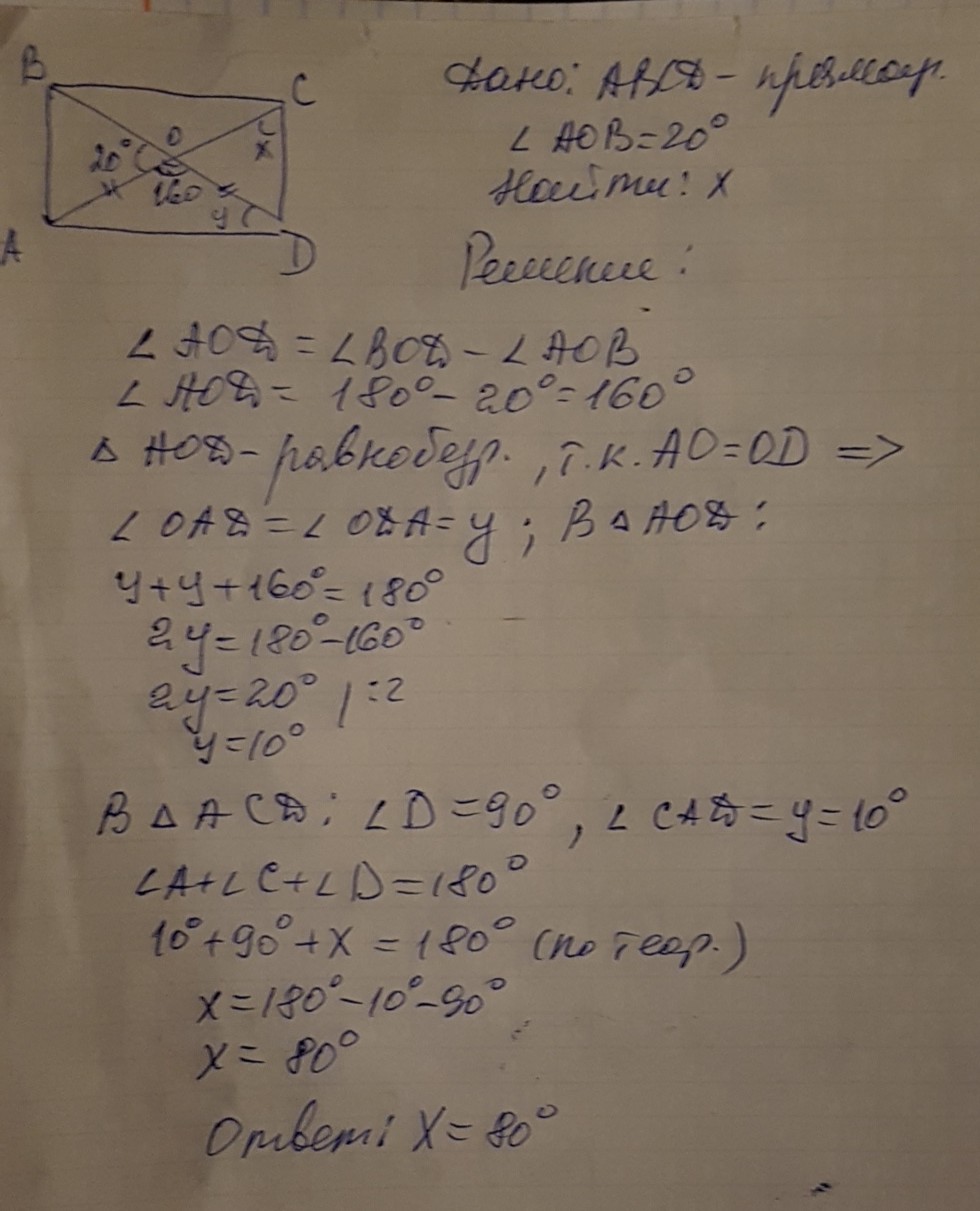 B
C
Дано: ABCD - прямоуг.
∠ AOB = 20°
Найти: x
20°
O
x
160
y
A
D
Решение:
∠ AOD = ∠BOD - ∠AOB
∠ AOD = 180° - 20° = 160°
△ AOD - равнобедр., т.к. AO = OD =>
∠ OAD = ∠ ODA = y ; В △ AOD :
y + y + 160° = 180°
2y = 180° - 160°
2y = 20° | :2
y = 10°
В △ ACD : ∠ D = 90° , ∠ CAD = y = 10°
∠A + ∠C + ∠D = 180°
10° + 90° + x = 180° (по теор.)
x = 180° - 10° - 90°
x = 80°
Ответ: x = 80°